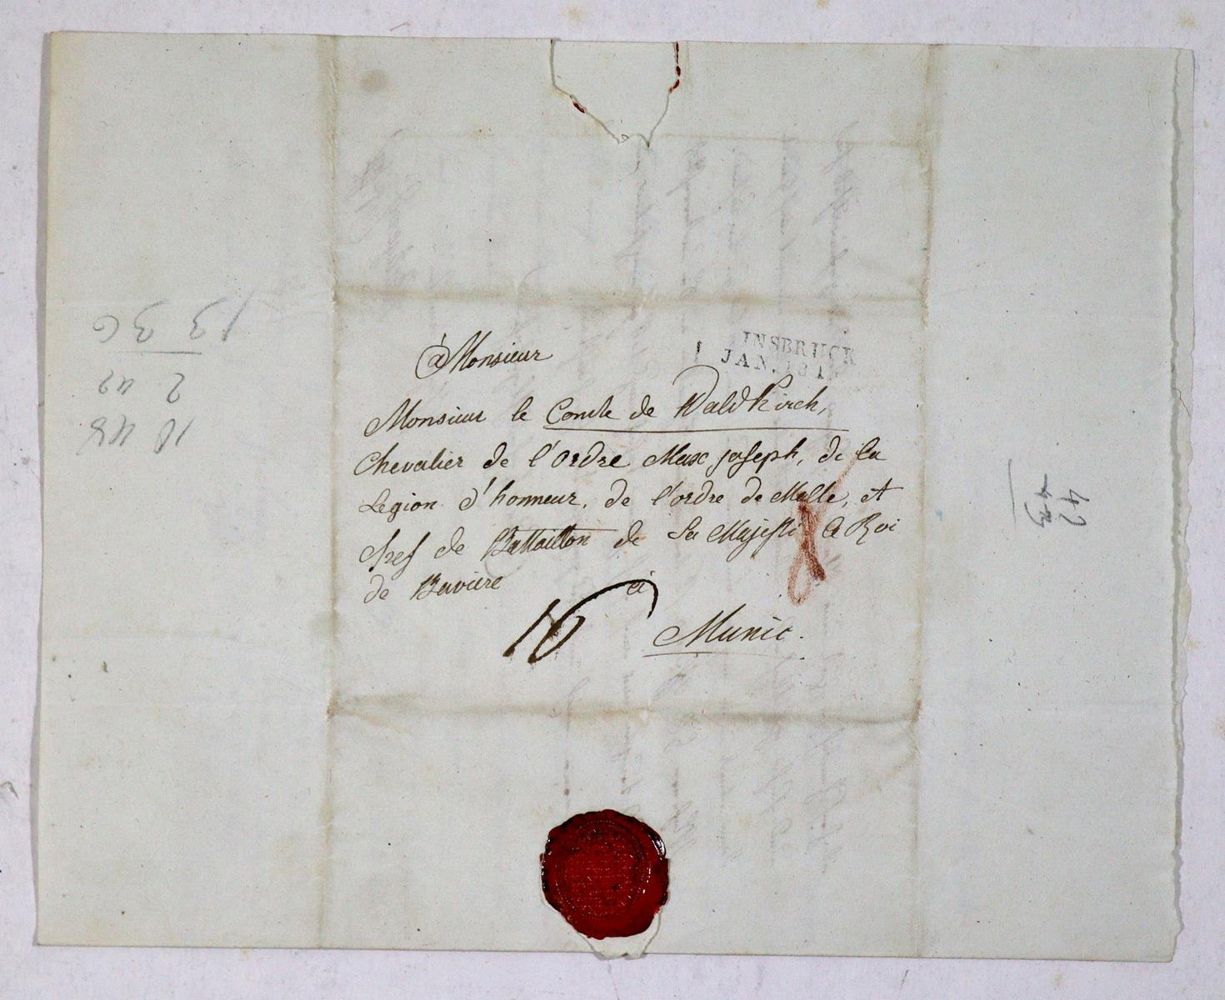 INSBRUCK
1 JAN. 181
à Monsieur
Monsieur le Comte de Waldkirch,
Chevalier de l'Ordre Max Joseph, de la
Legion d'honneur, de l'ordre de Malte, et
Chef de Battaillon de Sa Majesté le Roi
de Baviere à
16 Munic.
1 3 3 6
2 42
10 48
42
43